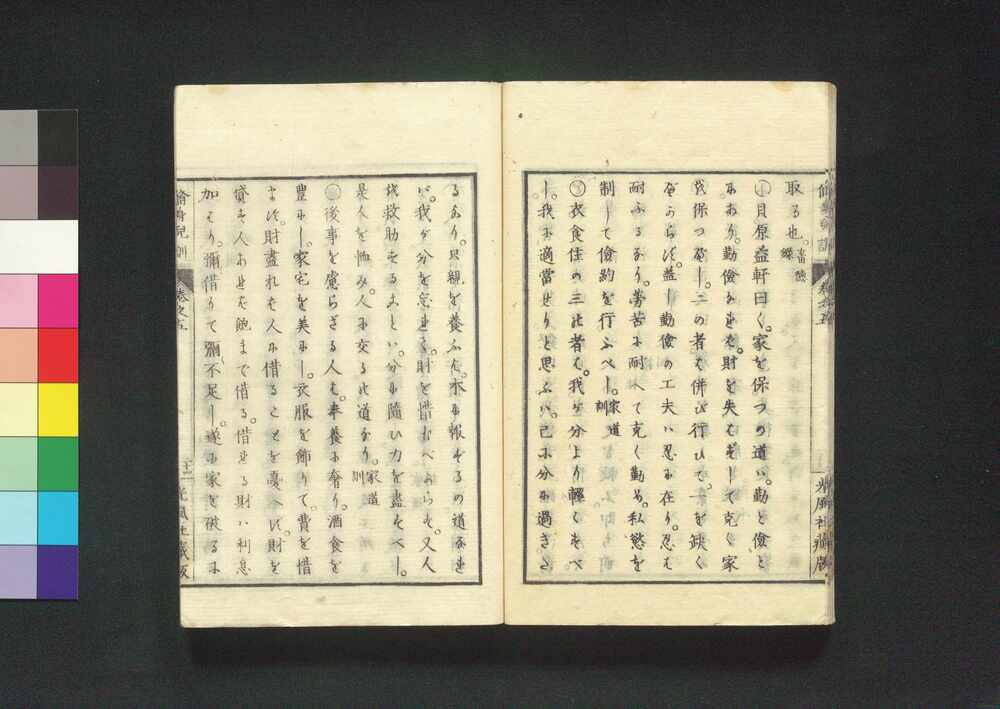 取る也。畜徳録
㊤貝原益軒曰く。家を保つの道ハ。勤と儉と
にあり。勤儉ならざれバ。財を失ハずして克く家
を保つべし。二の者を併び行ひて。一を缺く
べからず。蓋し勤儉の工夫ハ忍に在り。忍は
耐ふるなり。労苦に耐へて克く勤め。私慾を
制して儉約を行ふべし。家道訓
衣食住の三の者は。我が分より輕くすべ
し。我に適當せりと思ふハ。已に分に過ぎた
るなり。只親を養ふと。本に報ずるの道なれ
バ。我が分を定めて。財を惜むべからず。又人
を救助するなどハ。分に隨ひ力を盡すべし。
是人を恤み。人に交るの道なり。家道訓
後事を慮らざる人は。奉養に奢り。酒食を
豊にし。家宅を美にし。衣服を飾りて。費を惜
まず。財盡れは人に借ることを憂へず。財を
貸す人あれは飽まで借る。借せる財ハ利息
加はり。彌借りて彌不足し。遂に家を破るに
脩身兒訓
卷之五
十二
光風社藏版